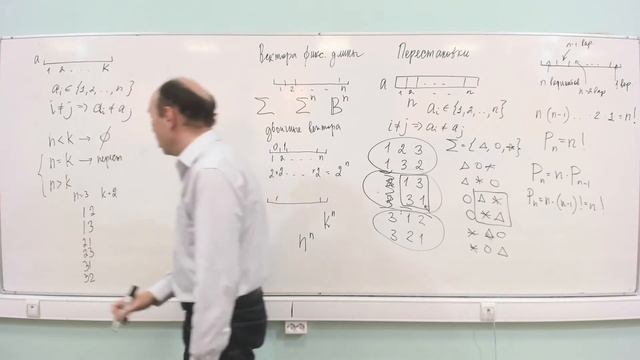 a
1 2 . . . . K
aᵢ ∈ {1,2,..,n}
i≠j ⇒ aᵢ ≠ aⱼ
n<k → ∅
n=k → перест
n>k
n=3 k=2
12
13
21
23
31
32
Вектора фикс. длины
1 2 . . . n
Σ Σⁿ Bⁿ
двоичные вектора
0,1
1 2 . . . . n
2·2 . . . ·2 = 2ⁿ
kⁿ
nⁿ
Перестановки
a
1 2 . . . n
n aᵢ ∈ {1,2,..,n}
i≠j ⇒ aᵢ ≠ aⱼ
1 2 3
1 3 2
2 1 3
2 3 1
3 1 2
3 2 1
Σ = {△, ○, *}
△ ○ *
△ * ○
○ △ *
○ * △
* △ ○
* ○ △
n-1 вар.
n вариантов
n-2 вар
1 вар.
n(n-1) . . . 2 · 1 = n!
Pₙ = n!
Pₙ = n · Pₙ₋₁
Pₙ = n · (n-1)! = n!